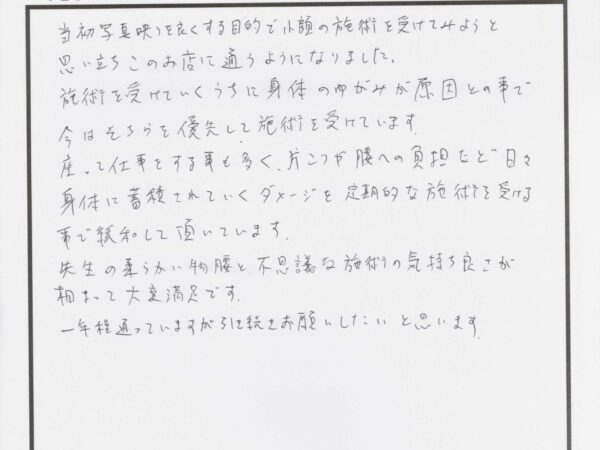 当初写真映りを良くする目的で小顔の施術を受けてみようと
思い立ちこのお店に通うようになりました。
施術を受けていくうちに身体のゆがみが原因との事で
今はそちらを優先して施術を受けています。
座って仕事をする事も多く、片こりや腰への負担など日々
身体に蓄積されていくダメージを定期的な施術を受ける
事で緩和して頂いています。
先生の柔らかい物腰と不思議な施術の気持ち良さが
相まって大変満足です。
一年程通っていますが引き続きお願いしたいと思います。